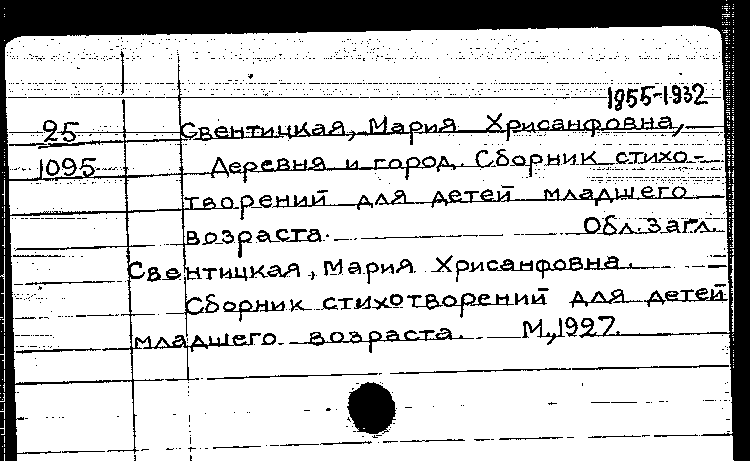 1855-1932
25 Свентицкая, Мария Хрисанфовна,
1095 Деревня и город. Сборник стихо-
творений для детей младшего
возраста. Обл. загл.
Свентицкая, Мария Хрисанфовна.
Сборник стихотворений для детей
младшего возраста. М., 1927.